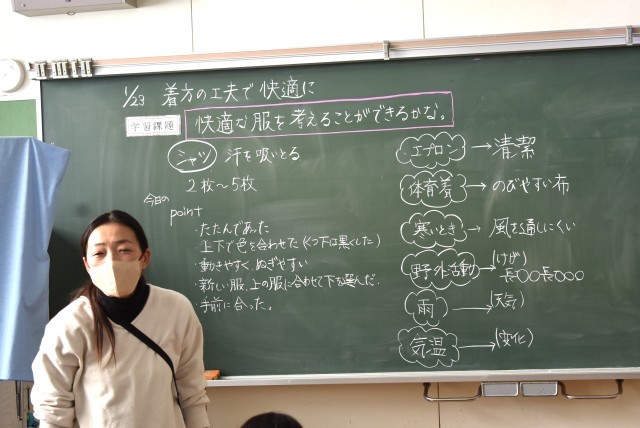 1/23 着方の工夫で快適に
学習課題
快適な服を考えることができるかな。
シャツ 汗を吸いとる
2枚～5枚
今日の
point
・たたんであった
・上下で色を合わせた(くつ下は黒くした)
・動きやすく、ぬぎやすい
・新しい服、上の服に合わせて下を選んだ.
・手前に合った。
エプロン→清潔
体育着→のびやすい布
寒いとき→風を通しにくい
野外活動→(けが)
長〇〇長〇〇〇
雨→(天気)
気温→(変化)